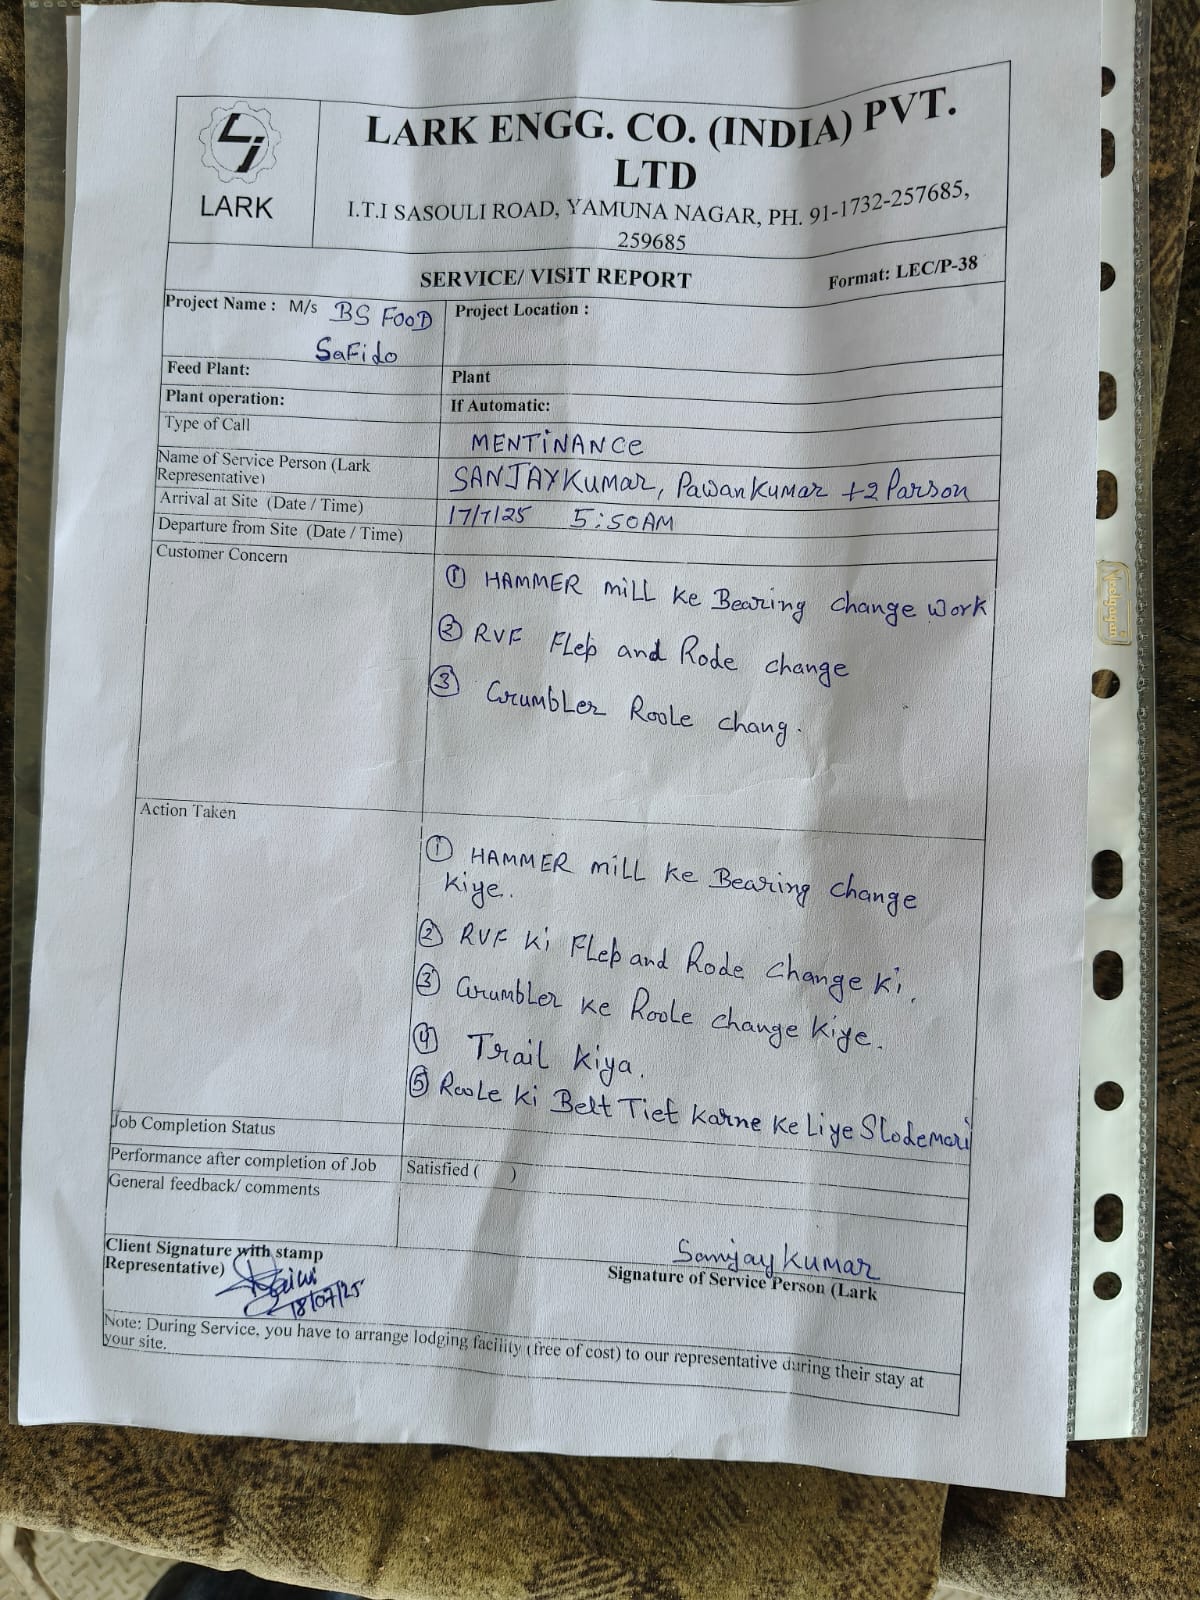 LARK
LARK ENGG. CO. (INDIA) PVT.
LTD
I.T.I SASOULI ROAD, YAMUNA NAGAR, PH. 91-1732-257685,
259685
SERVICE/ VISIT REPORT
Format: LEC/P-38
Project Name : M/s BS FOOD
SaFido
Project Location :
Feed Plant:
Plant
Plant operation:
If Automatic:
Type of Call
MENTINANCe
Name of Service Person (Lark
Representative)
SANJAY Kumar, Pawan Kumar +2 Parson
Arrival at Site (Date / Time)
17/7/25 5:50AM
Departure from Site (Date / Time)
Customer Concern
① HAMMER miLL Ke Bearing change work
② RVF FLep and Rode change
③ Crumbler Roole chang.
Action Taken
① HAMMER miLL Ke Bearing change
Kiye.
② RVF Ki FLep and Rode change Ki.
③ Crumbler Ke Roole change Kiye.
④ Trail Kiya.
⑤ Roole Ki Belt Tiet Karne Ke Liye Slodemari
Job Completion Status
Performance after completion of Job
Satisfied ( )
General feedback/ comments
Client Signature with stamp
Representative)
18/07/25
Sanjay Kumar
Signature of Service Person (Lark
Note: During Service, you have to arrange lodging facility (free of cost) to our representative during their stay at
your site.
Neelgagan